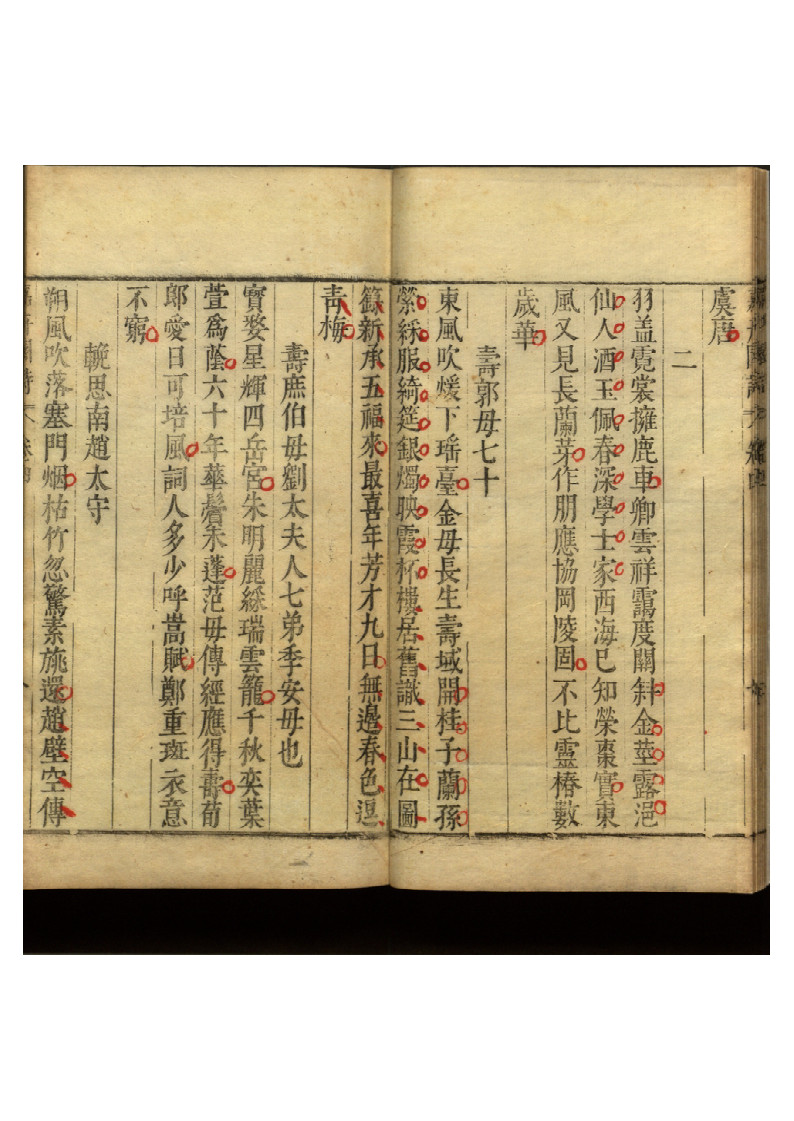 虞唐
二
羽盖霓裳擁鹿車卿雲祥靄度關斜金莖露浥
仙人酒玉佩春深學士家西海已知榮棗實東
風又見長蘭芽作朋應協岡陵固不比靈椿數
歲華
壽郭母七十
東風吹煖下瑶臺金母長生壽域開桂子蘭孫
縈綵服綺筵銀燭映霞杯樓居舊識三山在圖
籙新承五福來最喜年芳才九日無邊春色逗
青梅
壽庶伯母劉太夫人七弟季安母也
寶婺星輝四岳宮朱明麗綵瑞雲籠千秋奕葉
萱爲蔭六十年華鬢未蓬范母傳經應得壽荀
郎愛日可培風詞人多少呼嵩賦鄭重斑衣意
不窮
輓思南趙太守
朔風吹落塞門烟枯竹忽驚素旐還趙壁空傳